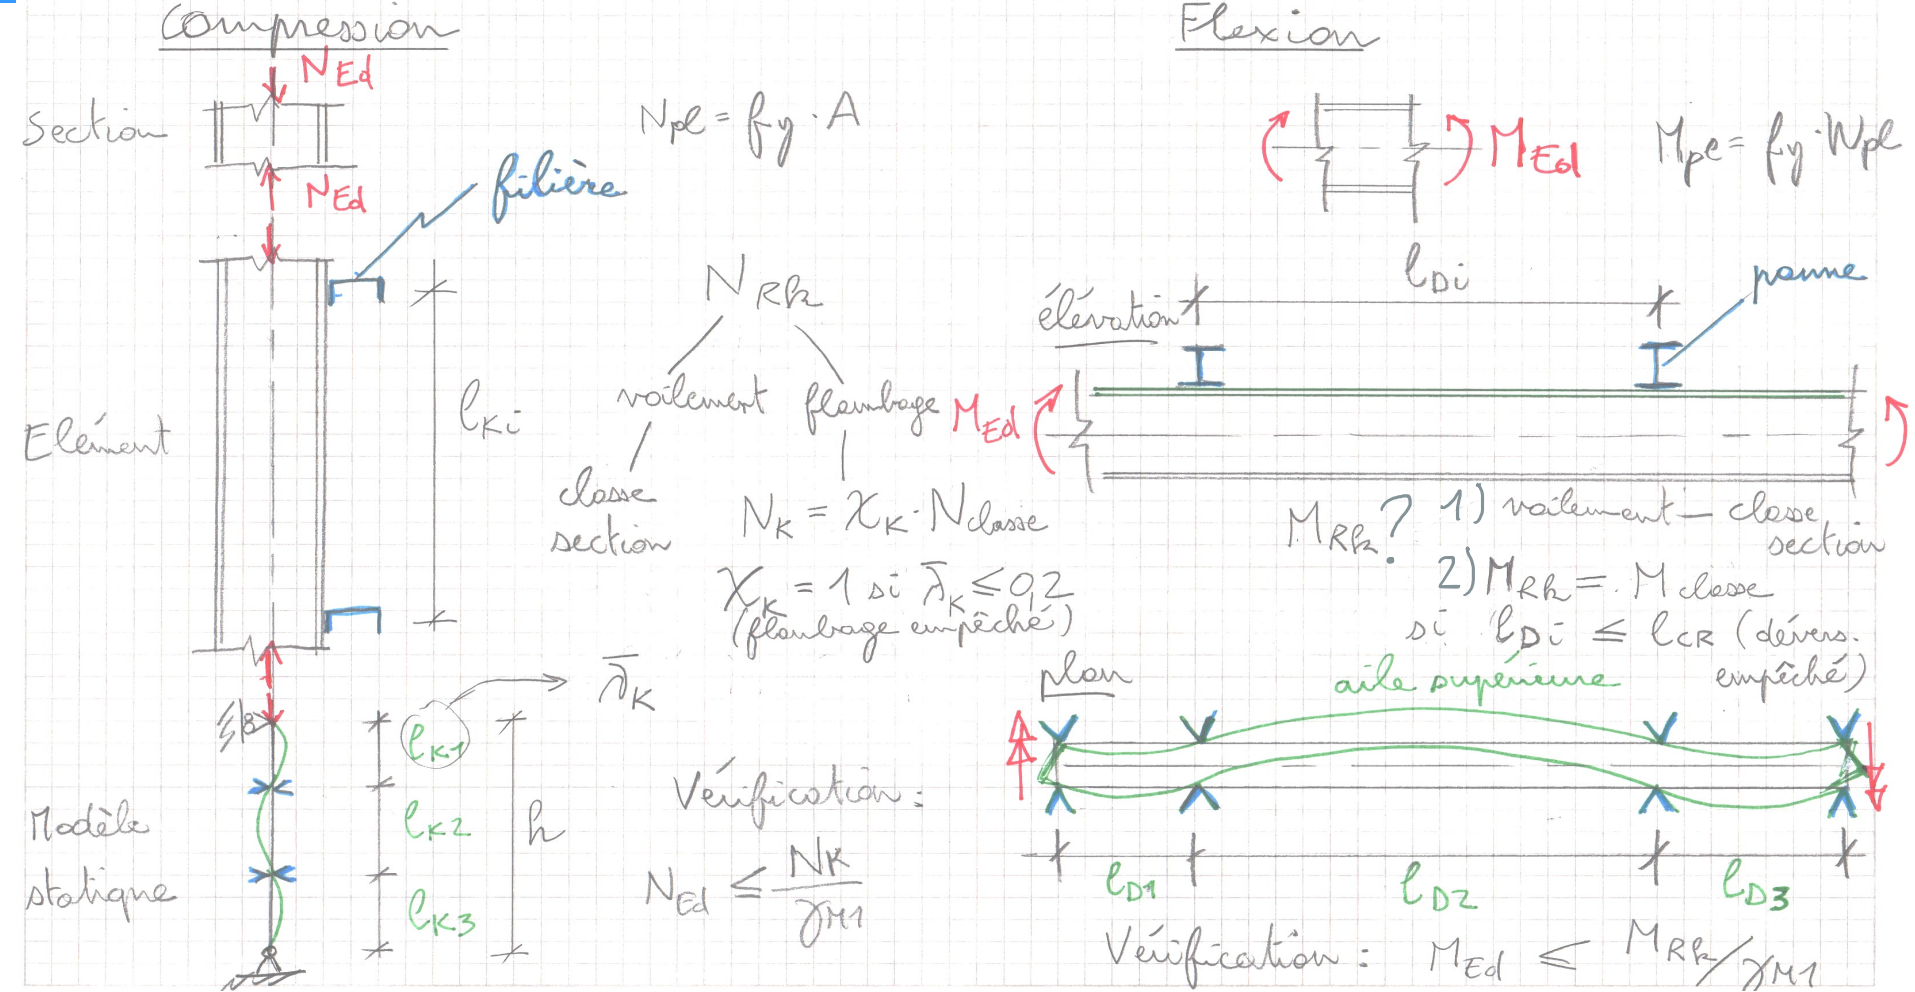 Compression
N_Ed
Section
N_Ed
N_pl = f_y · A
filière
N_Rk
voilement
flambage
classe
section
N_K = χ_K · N_classe
χ_K = 1 si λ̄_K ≤ 0,2
(flambage empêché)
Elément
l_Ki
λ̄_K
l_K1
l_K2
l_K3
h
Modèle
statique
Vérification :
N_Ed ≤ N_K / γ_M1
Flexion
M_Ed
M_pl = f_y · W_pl
l_Di
panne
élévation
M_Ed
M_Rk ? 1) voilement – classe
section
2) M_Rk = M_classe
si l_Di ≤ l_CR (dévers.
empêché)
plan
aile supérieure
l_D1
l_D2
l_D3
Vérification : M_Ed ≤ M_Rk/γ_M1